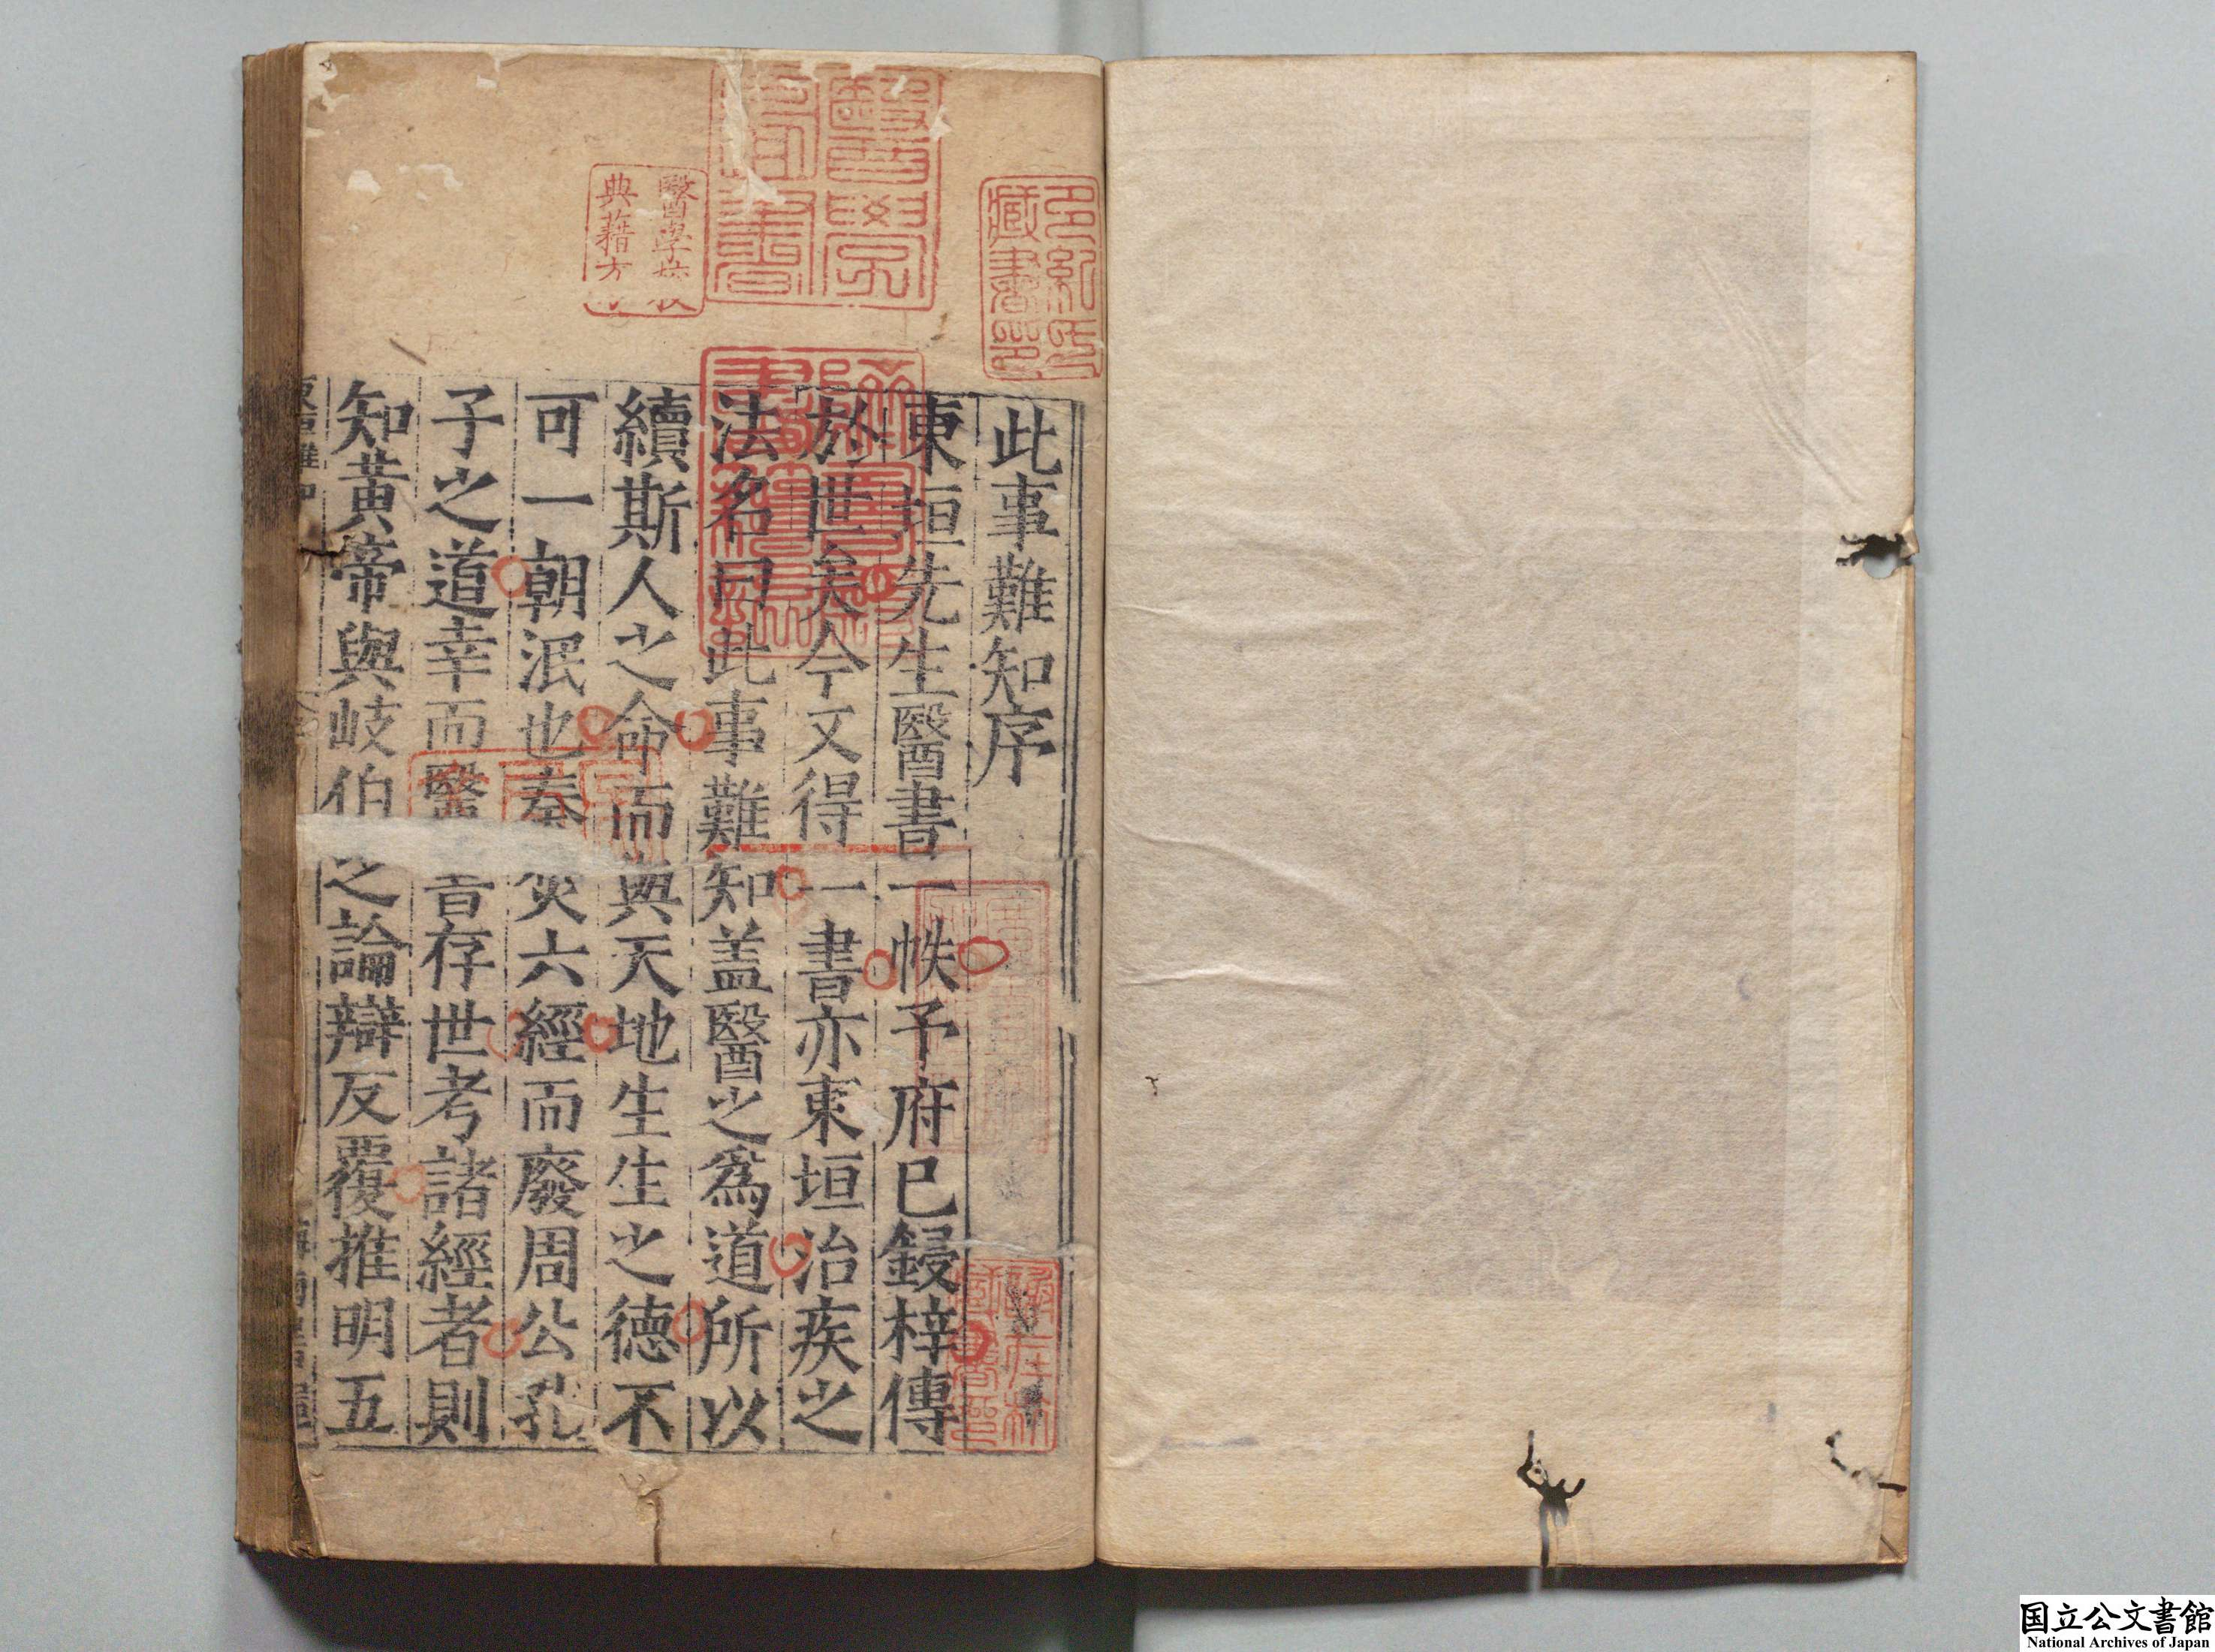 此事難知序
東垣先生醫書一帙予府已鋟梓傳
於世矣今又得一書亦東垣治疾之
法名曰此事難知盖醫之爲道所以
續斯人之命而與天地生生之德不
可一朝泯也秦焚六經而廢周公孔
子之道幸而醫書存世考諸經者則
知黃帝與岐伯之論辯反覆推明五
多紀氏
藏書印
醫學
圖書
醫學校
典籍
国立公文書館
National Archives of Japan